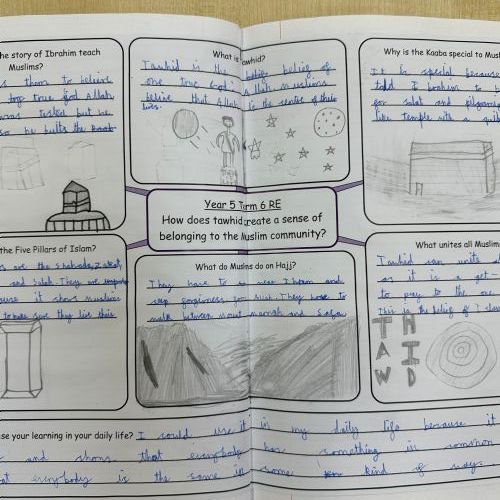 he story of Ibrahim teach
Muslims?
s them to believe
true God Allah
was tested but he
so he builts the
What is Tawhid?
Tawhid is the belief of
one true God Allah Muslims
believe that Allah is the centre of their
lives.
Why is the Kaaba special to Musl
It is special because
told Ibrahim to b
for salat and pilgrima
like temple with a
Year 5 Term 6 RE
How does tawhid create a sense of
belonging to the Muslim community?
the Five Pillars of Islam?
s are the Shahada, Zakat,
and Salah. They are
ause it shows muslims
to make sure they live this
What do Muslims do on Hajj?
They have to wear Ihram and
seek forgiveness for Allah. They have to
walk between mount marwah and Safa
What unites all Muslim
Tawhid can unite al
as it is a get
to pray to the one
This is the belief of
TAW HID
se your learning in your daily life? I could use it in my daily life because it
and shows that everybody has something in common
at everybody is the same in some kind of ways.